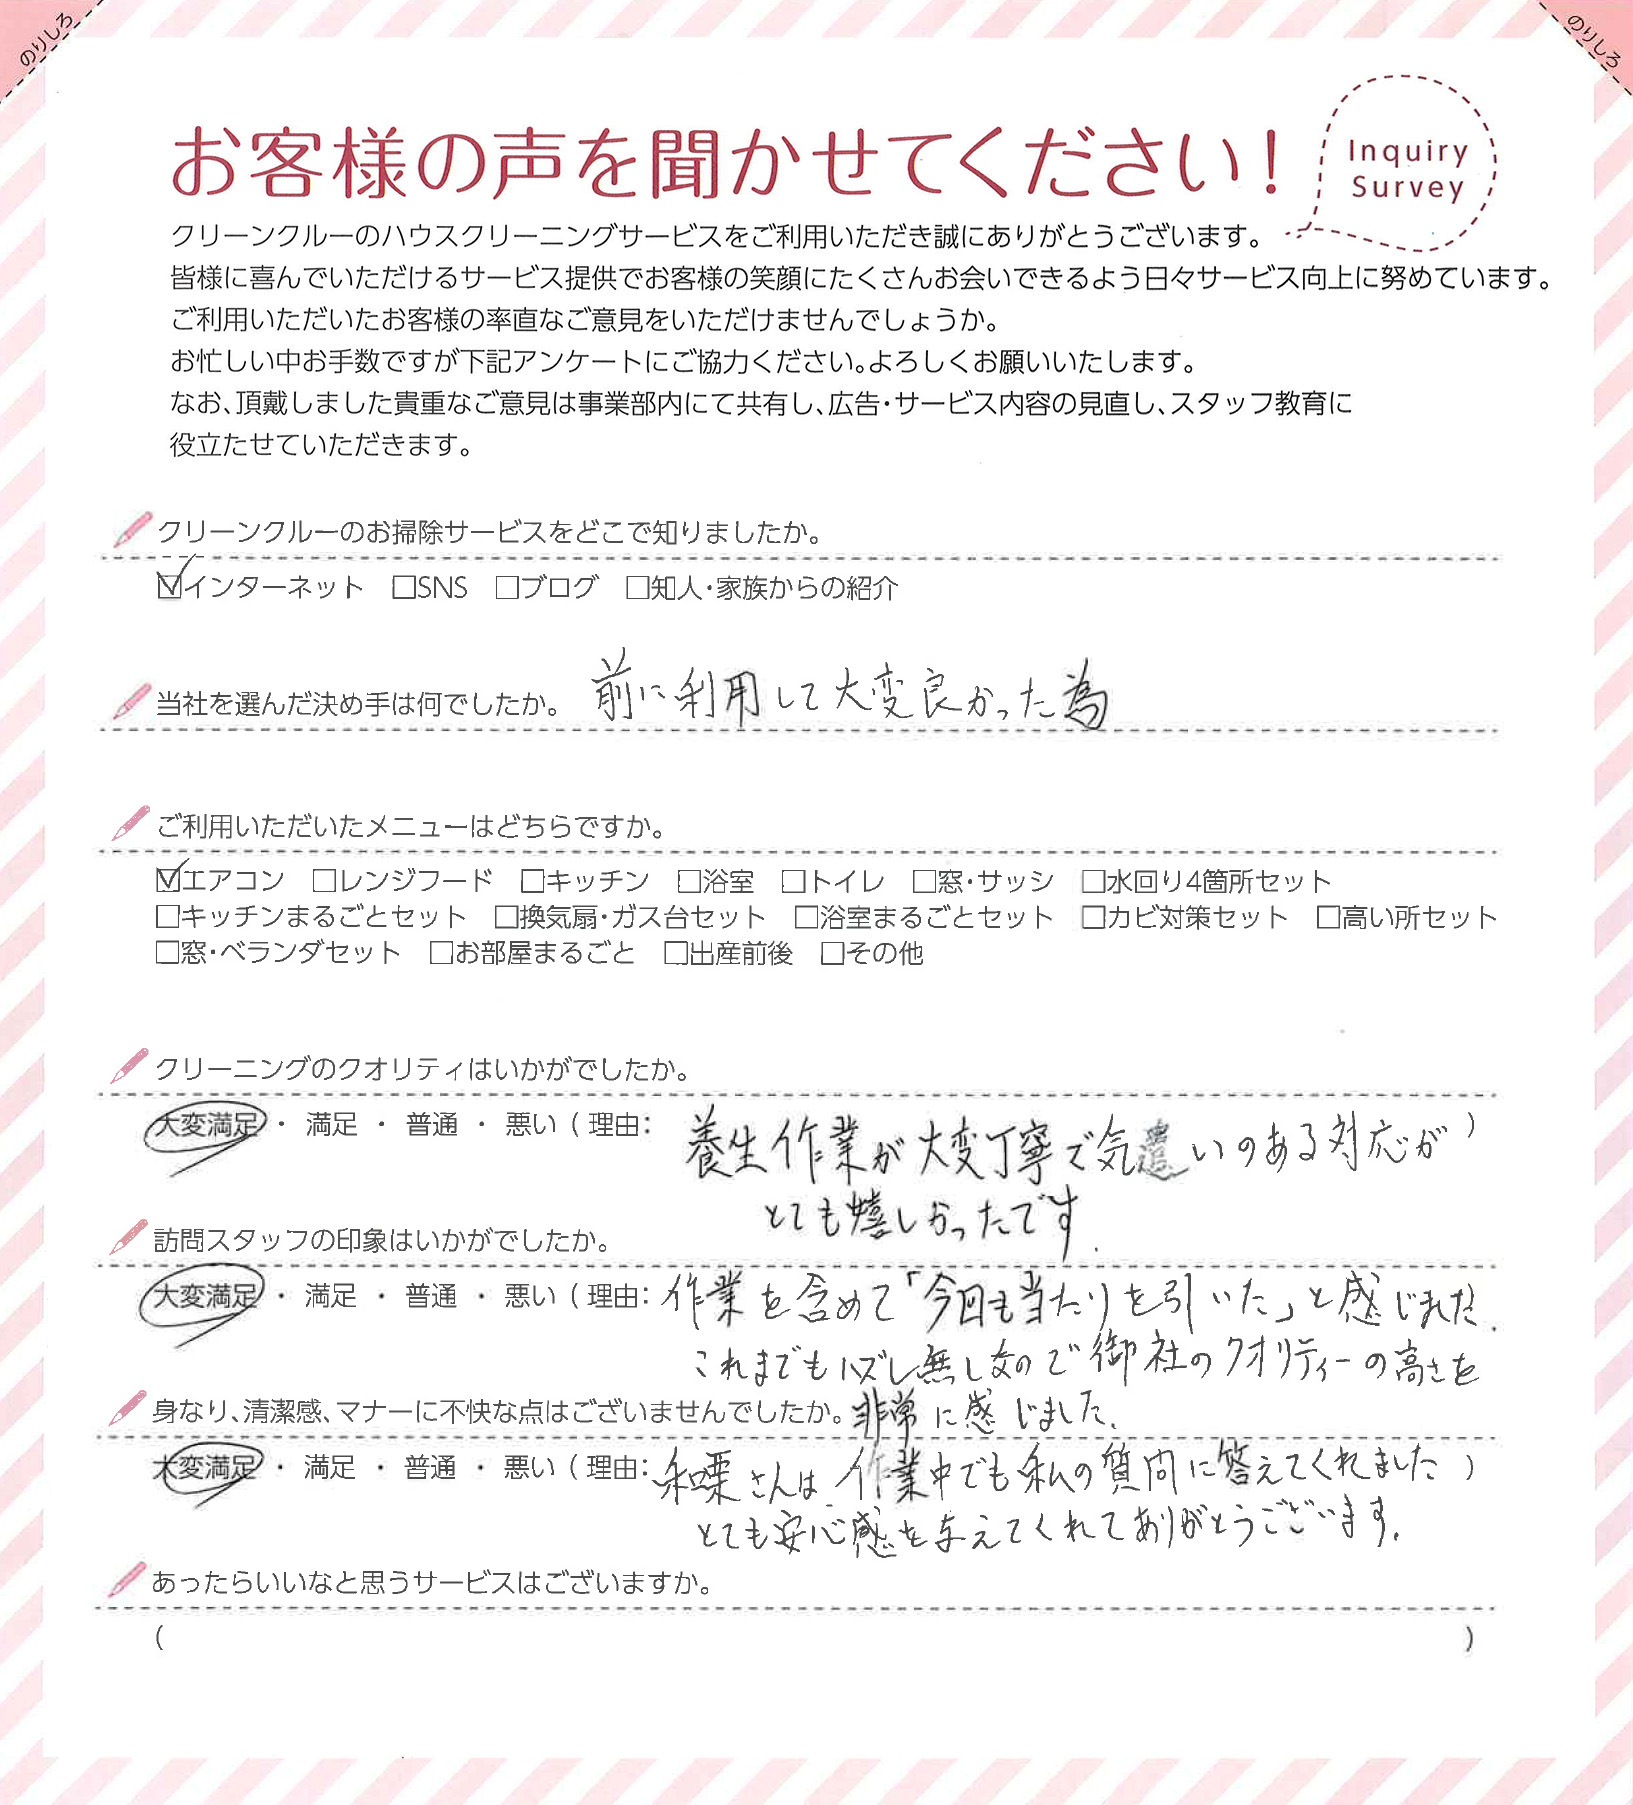 のりしろ
のりしろ
お客様の声を聞かせてください!
Inquiry
Survey
クリーンクルーのハウスクリーニングサービスをご利用いただき誠にありがとうございます。
皆様に喜んでいただけるサービス提供でお客様の笑顔にたくさんお会いできるよう日々サービス向上に努めています。
ご利用いただいたお客様の率直なご意見をいただけませんでしょうか。
お忙しい中お手数ですが下記アンケートにご協力ください。よろしくお願いいたします。
なお、頂戴しました貴重なご意見は事業部内にて共有し、広告・サービス内容の見直し、スタッフ教育に
役立たせていただきます。
クリーンクルーのお掃除サービスをどこで知りましたか。
☑インターネット □SNS □ブログ □知人・家族からの紹介
当社を選んだ決め手は何でしたか。 前に利用して大変良かった為
ご利用いただいたメニューはどちらですか。
☑エアコン □レンジフード □キッチン □浴室 □トイレ □窓・サッシ □水回り4箇所セット
□キッチンまるごとセット □換気扇・ガス台セット □浴室まるごとセット □カビ対策セット □高い所セット
□窓・ベランダセット □お部屋まるごと □出産前後 □その他
クリーニングのクオリティはいかがでしたか。
大変満足 ・ 満足 ・ 普通 ・ 悪い ( 理由: 養生作業が大変丁寧で気遣いのある対応が )
とても嬉しかったです.
訪問スタッフの印象はいかがでしたか。
大変満足 ・ 満足 ・ 普通 ・ 悪い ( 理由: 作業を含めて「今回も当たりを引いた」と感じました.
これまでもハズレ無しなので御社のクオリティーの高さを
身なり、清潔感、マナーに不快な点はございませんでしたか。 非常に感じました.
大変満足 ・ 満足 ・ 普通 ・ 悪い ( 理由: さんは、作業中でも私の質問に答えてくれました )
とても安心感を与えてくれてありがとうございます.
あったらいいなと思うサービスはございますか。
( )